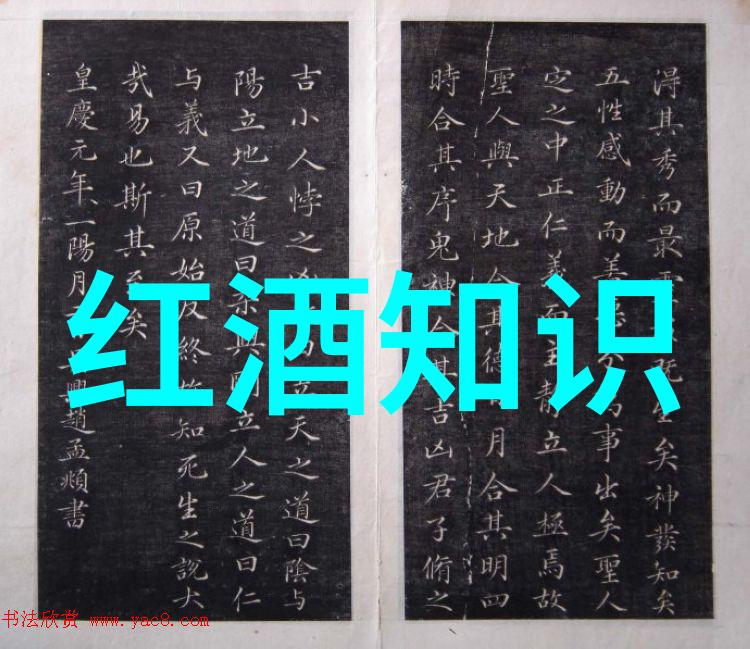 淂其秀而最旣生矣神發知矣
五性感動而善分事出矣聖人
定之中正仁義而主靜立人極焉故
聖人與天地合其德月合其明四
時合其序鬼神合其吉凶君子脩之
吉小人悖之凶立天之道曰陰与
陽立地之道曰柔與剛立人之道曰仁
与義又曰原始反終故知死生之說大
哉易也斯其至矣
皇慶元年一陽月興趙孟頫書
红酒知识
书法欣赏 www.yac8.com